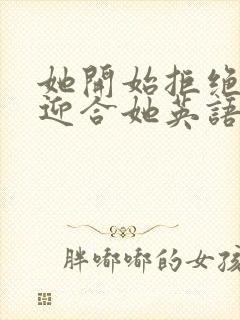 她開始拒绝
迎合她英語
胖嘟嘟的女孩